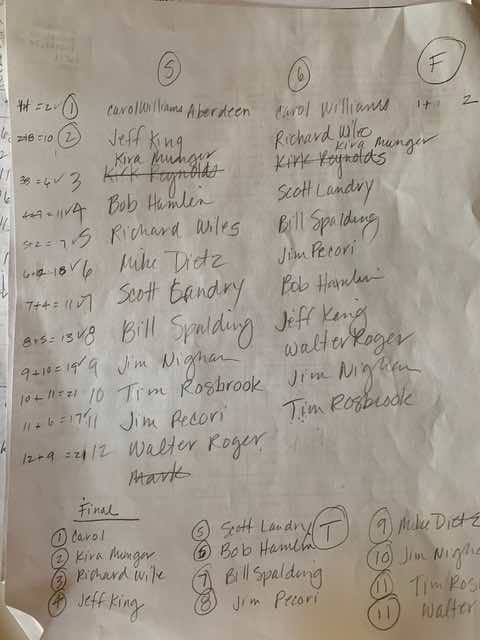 5 6 F
1+1 = 2 ✓ 1 Carol Williams Aberdeen Carol Williams 1+1 2
2+8=10 2 Jeff King Richard Wile
Kira Munger Kira Munger
3 Kirk Reynolds Kirk Reynolds
= 11 ✓ 4 Bob Hamlin Scott Landry
5+2 = 7 ✓ 5 Richard Wiles Bill Spalding
6+12=18 ✓ 6 Mike Dietz Jim Pecori
7+4=11 ✓ 7 Scott Landry Bob Hamlin
8+5=13 ✓ 8 Bill Spalding Jeff King
9+10=19 ✓ 9 Jim Nighan Walter Roger
10+11=21 10 Tim Rosbrook Jim Nighan
11+6=17 ✓ 11 Jim Pecori Tim Rosbrook
12+9=21 12 Walter Roger
Mark
Final
1 Carol 5 Scott Landry T 9 Mike Dietz
2 Kira Munger 6 Bob Hamlin 10 Jim Nigha
3 Richard Wile 7 Bill Spalding 11 Tim Ros
4 Jeff King 8 Jim Pecori 11 Walter